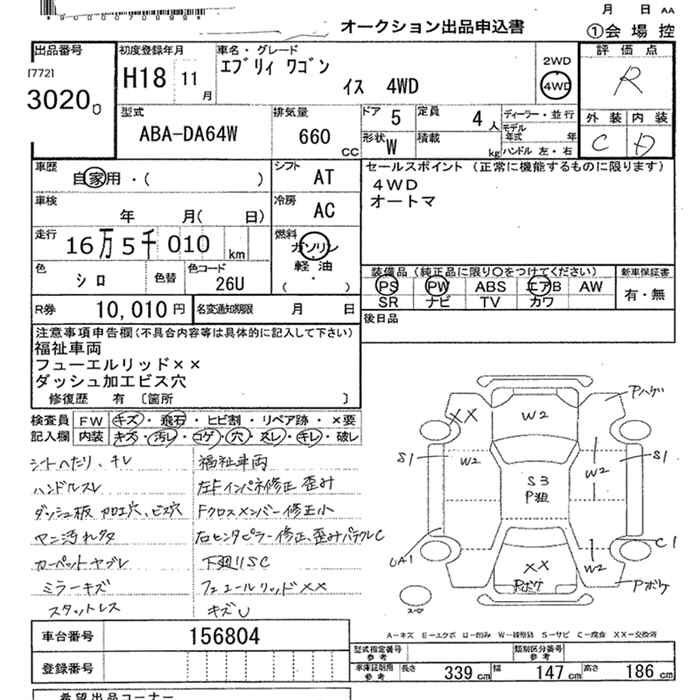 *90000070998*
月 日 AA
オークション出品申込書
①会場控
出品番号
[772]
3020
初度登録年月
H18 11月
車名・グレード
エブリィ ワゴン
イス 4WD
2WD
4WD
評価点
R
型式
ABA-DA64W
排気量
660 CC
ドア 5
定員 4人
形状 W
積載 kg
ディーラー・並行
モデル年式 年
ハンドル 左・右
外装 内装
C D
車歴
自家用・( )
シフト
AT
セールスポイント (正常に機能するものに限ります)
4WD
オートマ
車検
年 月( 日)
冷房
AC
走行
16万5千010 km
燃料
ガソリン
軽油
( )
色
シロ
色替
色コード
26U
装備品(純正品に限り○をつけてください)
PS PW ABS エアB AW
SR ナビ TV カワ
新車保証書
有・無
R券 10,010円
名変通知期限 月 日
後日品
注意事項申告欄(不具合内容等は具体的に記入して下さい)
福祉車両
フューエルリッド××
ダッシュ加工ビス穴
修復歴 有 〔箇所 〕
検査員記入欄
FW キズ・飛石・ヒビ割・リペア跡・×要
内装 キズ・汚レ・コゲ・穴・スレ・キレ・破レ
シートへたり、キレ
ハンドルスレ
ダッシュ板 加工穴、ビス穴
カーペットヤブレ
ミラーキズ
スタットレス
福祉車両
左Fインパネ修正 歪み
Fクロスメンバー修正小
下廻りSC
フューエルリッド××
キズU
Pハゲ
XX
W2
S1
W2
W2
S1
S3
P狙
UA1
C1
XX
Pボケ
W2
Pボケ
スペア
A−キズ E−エクボ U−凹み W−補修跡 S−サビ C−腐食 XX−交換済
車台番号
156804
登録番号
型式指定番号 参考
類別区分番号 参考
車庫証明用 参考
長さ 339 cm
幅 147 cm
高さ 186 cm
希望出品コーナー